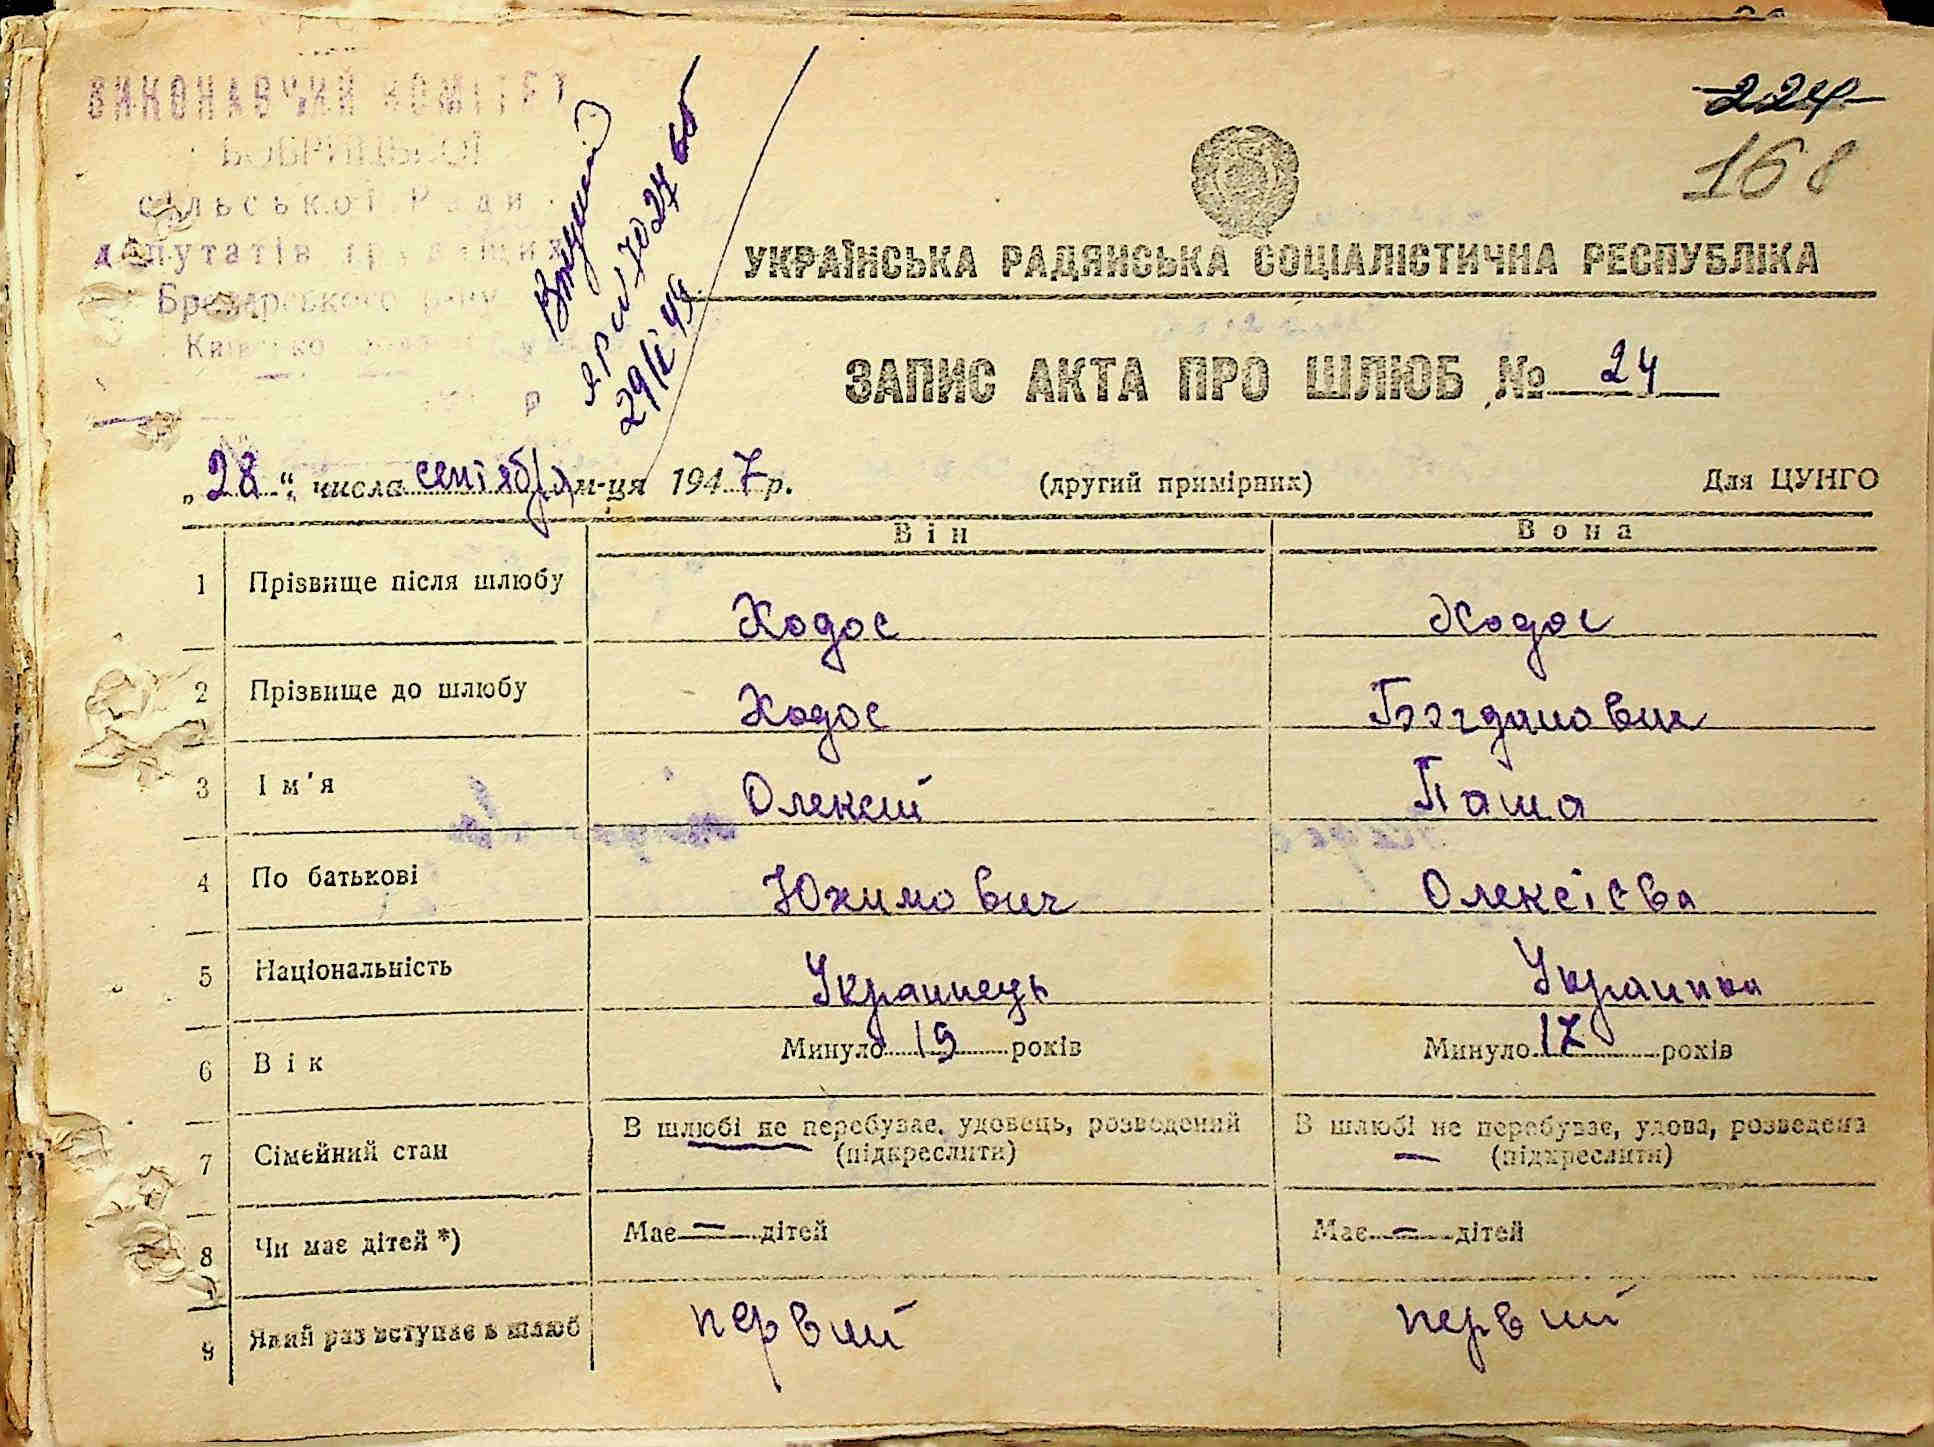 ВИКОНАВЧИЙ КОМІТЕТ
БОБРИЦЬКОЇ
сільської Ради
депутатів трудящих
Броварського р-ну
224
168
29/І 49
УКРАЇНСЬКА РАДЯНСЬКА СОЦІАЛІСТИЧНА РЕСПУБЛІКА
ЗАПИС АКТА ПРО ШЛЮБ № 24
„28“ числа сентября м-ця 1947 р. (другий примірник) Для ЦУНГО
Він Вона
1 Прізвище після шлюбу Ходос Ходос
2 Прізвище до шлюбу Ходос Богданович
3 Ім'я Олексій Паша
4 По батькові Юхимович Олексієва
5 Національність Украинець Украинка
6 Вік Минуло 19 років Минуло 17 років
7 Сімейний стан В шлюбі не перебуває, удовець, розведений (підкреслити) В шлюбі не перебуває, удова, розведена (підкреслити)
8 Чи має дітей *) Має — дітей Має — дітей
9 Який раз вступає в шлюб первий первий